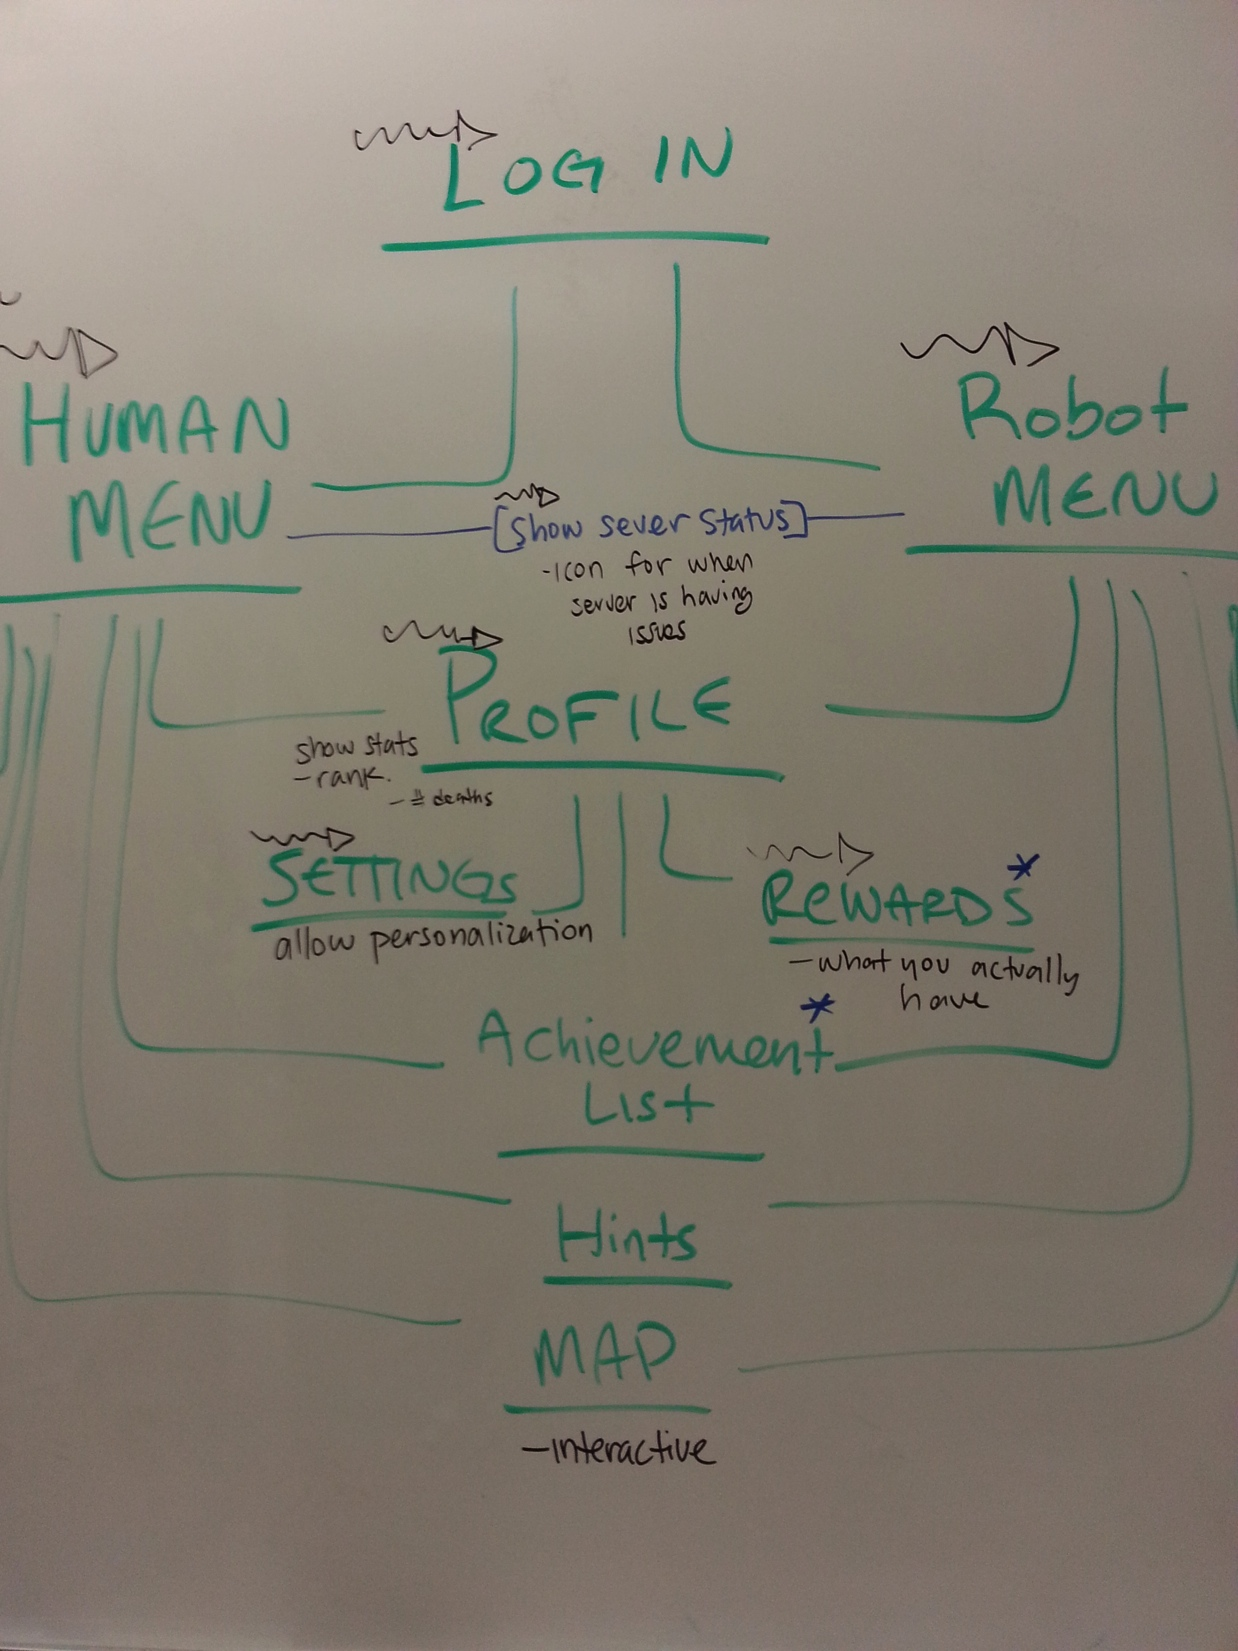 LOG IN
HUMAN
MENU
Robot
MENU
[Show sever status]
-icon for when
server is having
issues
PROFILE
show stats
-rank.
- # deaths
SETTINGS
allow personalization
REWARDS*
-what you actually
have
Achievement*
List
Hints
MAP
-interactive